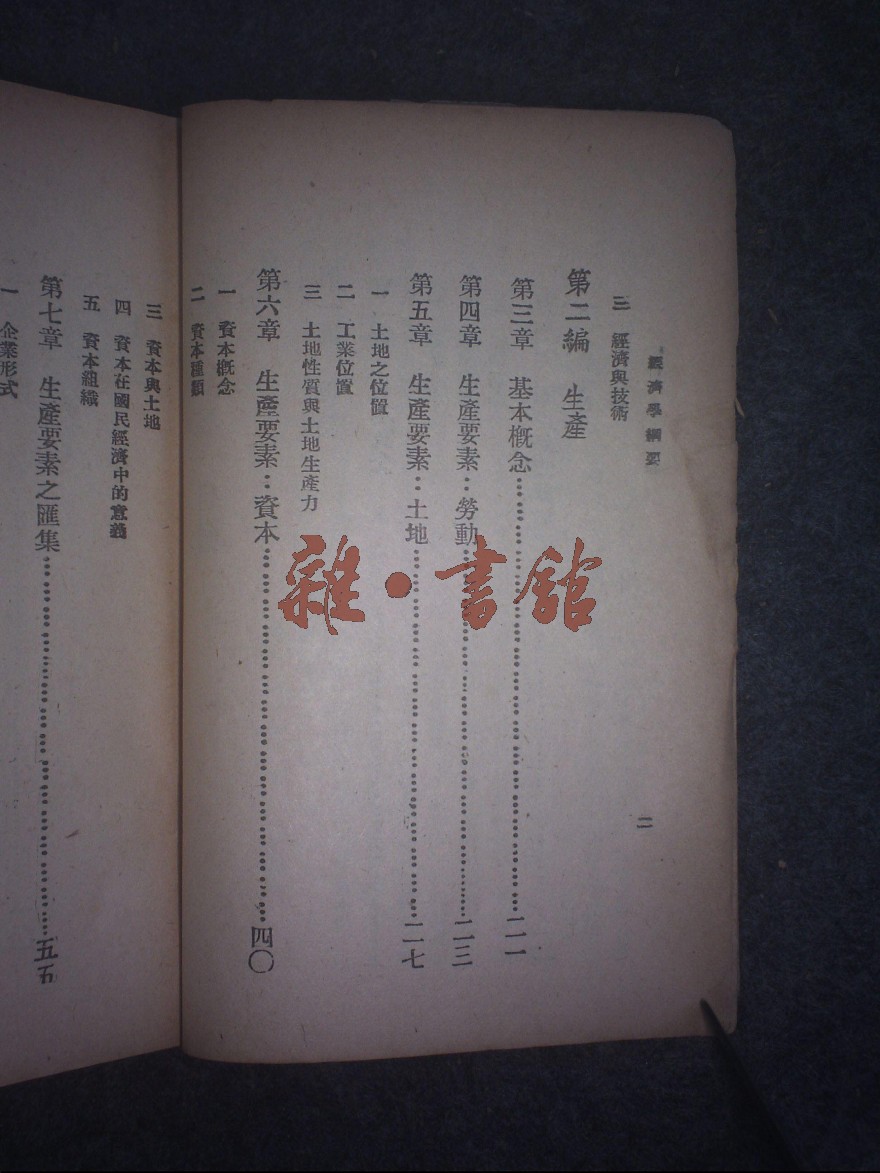 經濟學綱要
二
三 經濟與技術
第二編 生產
第三章 基本概念……二一
第四章 生產要素：勞動……二三
第五章 生產要素：土地……二七
一 土地之位置
二 工業位置
三 土地性質與土地生產力
第六章 生產要素：資本……四〇
一 資本概念
二 資本種類
三 資本與土地
四 資本在國民經濟中的意義
五 資本組織
第七章 生產要素之匯集……五五
一 企業形式
雜·書館